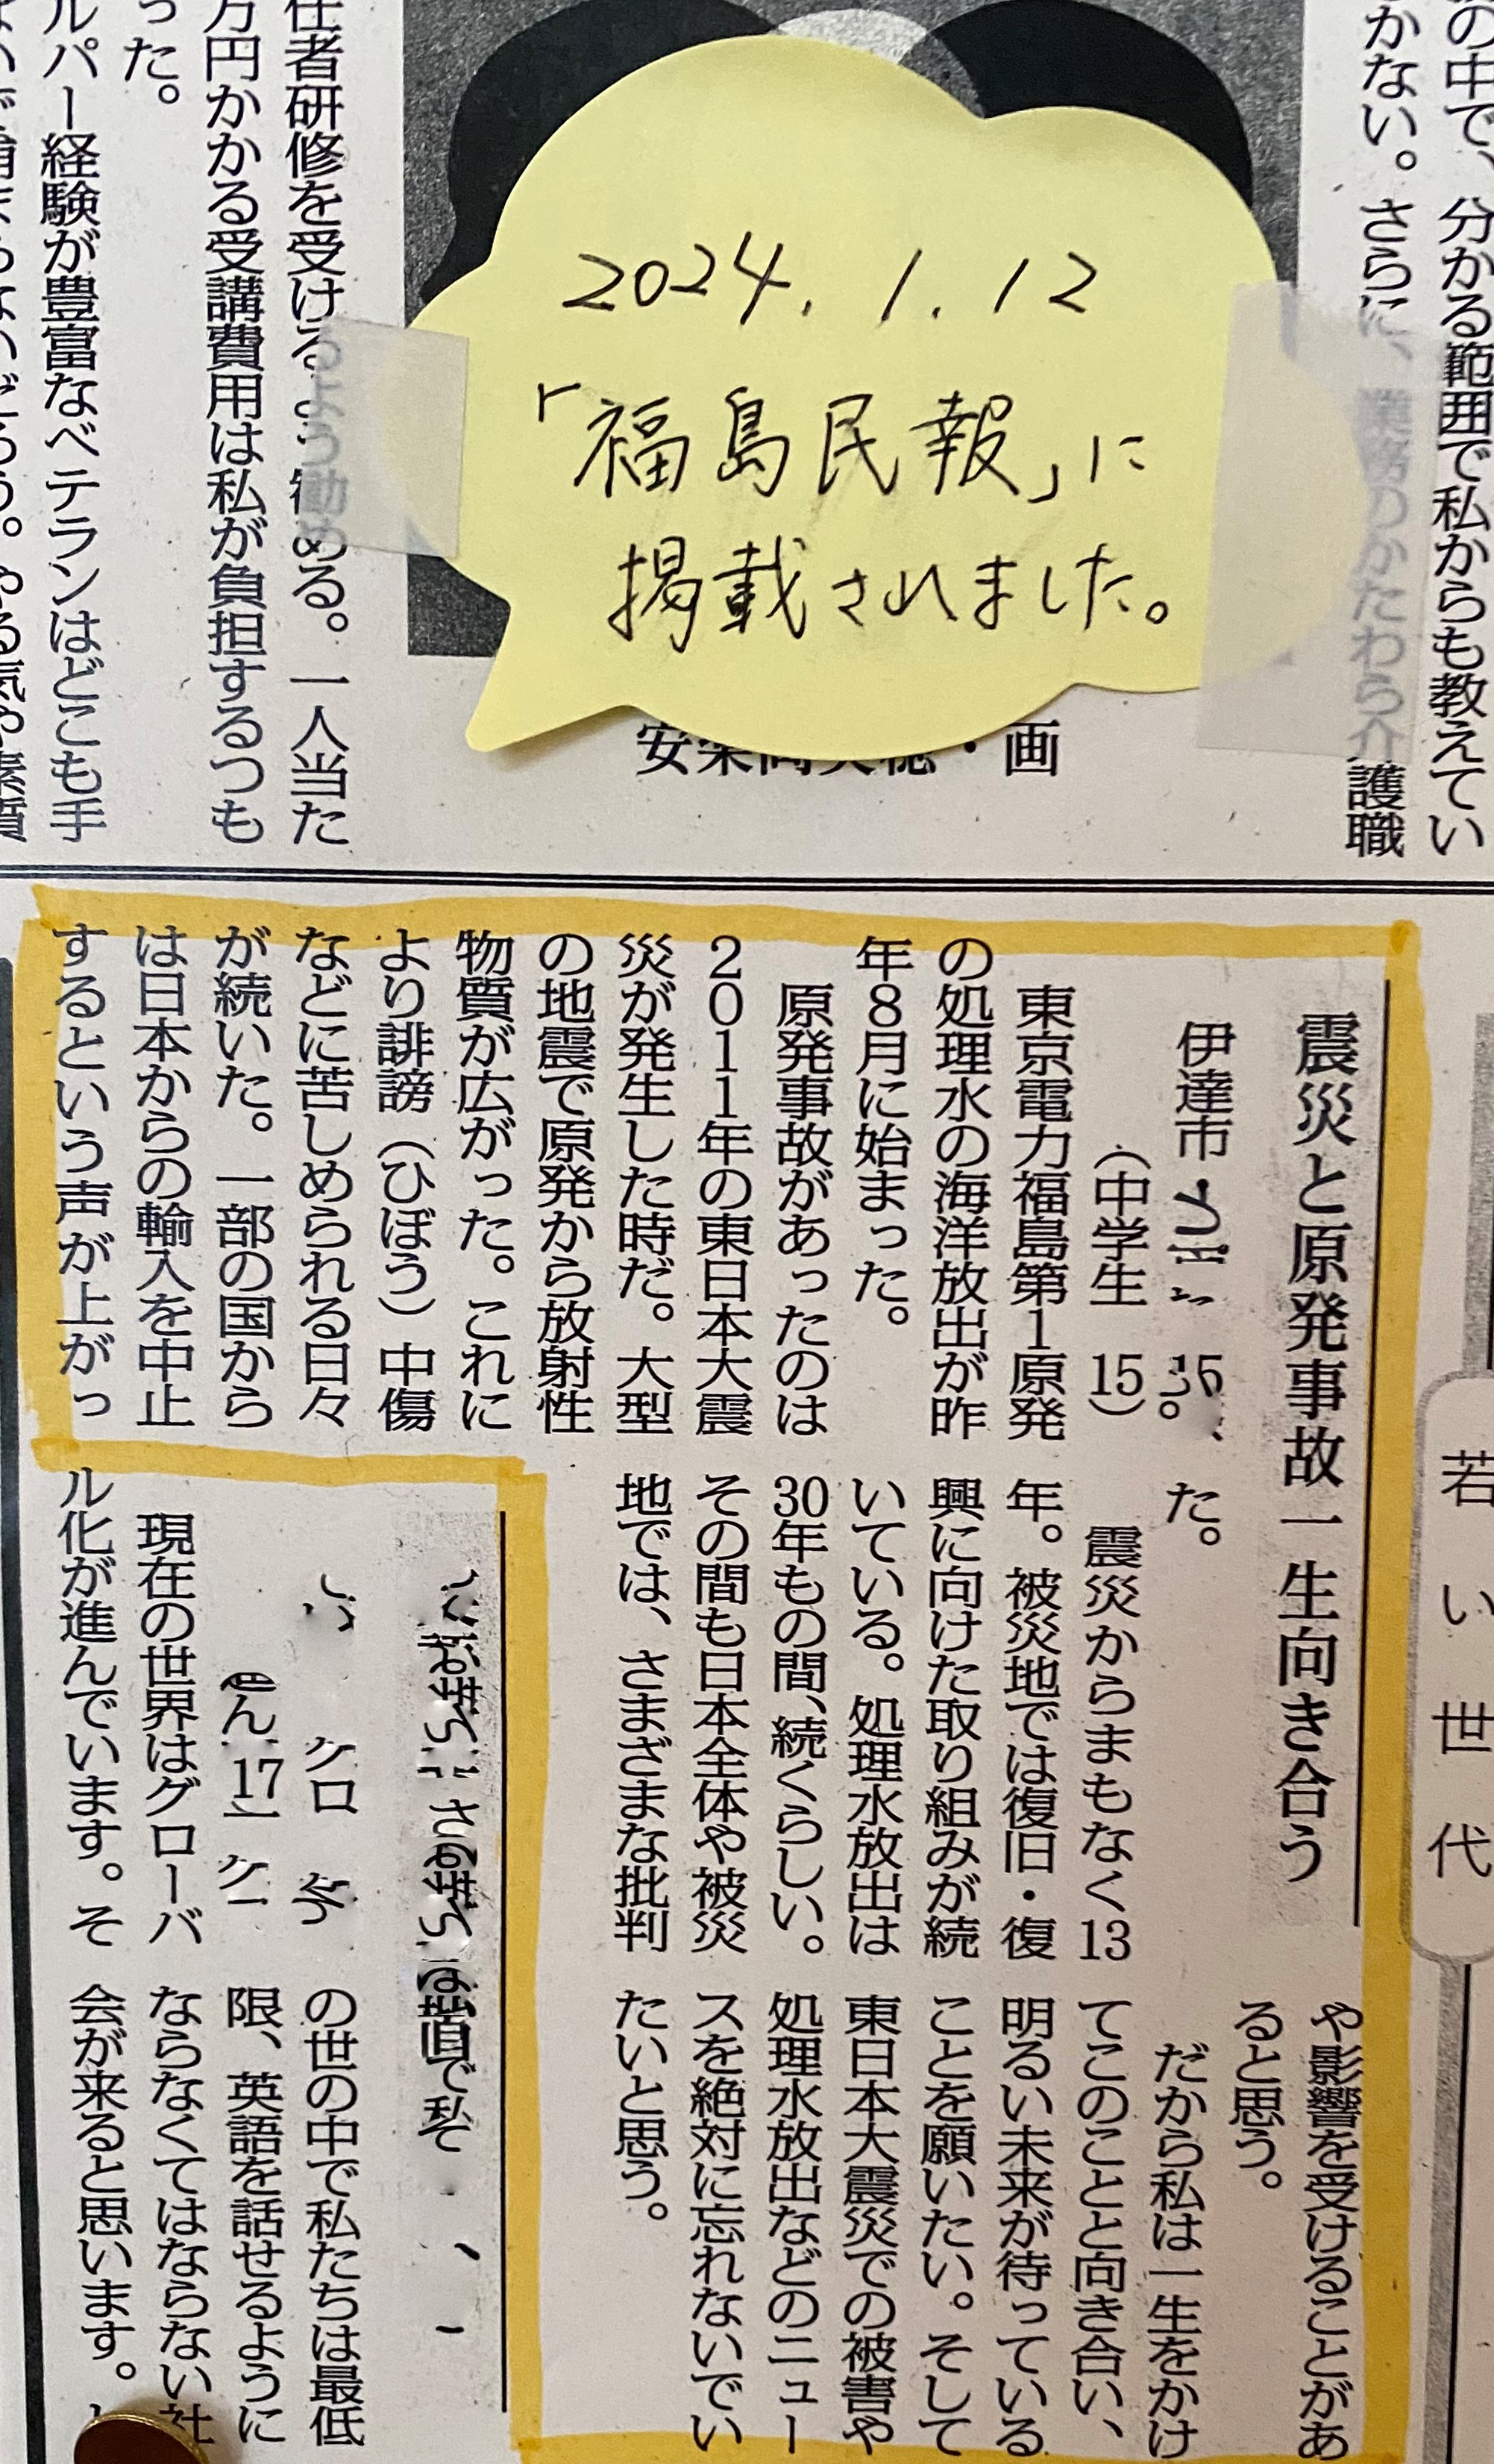 の中で、分かる範囲で私からも教えてい
かない。さらに、業務のかたわら介護職
2024.1.12
「福島民報」に
掲載されました。
安楽岡美穂・画
任者研修を受けるよう勧める。一人当た
万円かかる受講費用は私が負担するつも
った。
ルパー経験が豊富なベテランはどこも手
若い世代
震災と原発事故一生向き合う
伊達市
（中学生　15）
東京電力福島第1原発
の処理水の海洋放出が昨
年8月に始まった。
原発事故があったのは
2011年の東日本大震
災が発生した時だ。大型
の地震で原発から放射性
物質が広がった。これに
より誹謗（ひぼう）中傷
などに苦しめられる日々
が続いた。一部の国から
は日本からの輸入を中止
するという声が上がっ
た。
震災からまもなく13
年。被災地では復旧・復
興に向けた取り組みが続
いている。処理水放出は
30年もの間、続くらしい。
その間も日本全体や被災
地では、さまざまな批判
や影響を受けることがあ
ると思う。
だから私は一生をかけ
てこのことと向き合い、
明るい未来が待っている
ことを願いたい。そして
東日本大震災での被害や
処理水放出などのニュー
スを絶対に忘れないでい
たいと思う。
現在の世界はグローバ
ル化が進んでいます。そ
の世の中で私たちは最低
限、英語を話せるように
ならなくてはならない社
会が来ると思います。